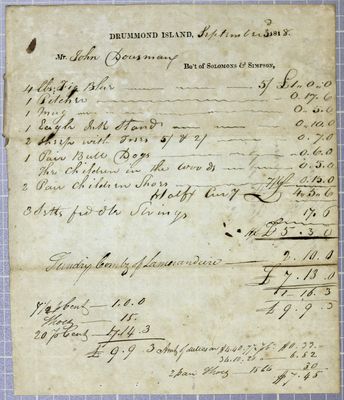 DRUMMOND ISLAND, September 3 1818.
Mr. John Dousman
Bo't of SOLOMONS & SIMPSON,
4 lbs Fig Blue 5/ £1.0.0
1 Pitcher 0.17.6
1 Mug 0.5.0
1 Eagle Ink Stand 0.10.0
2 Sheep with 5/ & 2/ 0.7.0
1 Pair Bull Dogs 0.6.0
The Children in the woods 0.5.0
2 Pair Children Shoes 7/6 0.15.0
Halfx Cury £ 4.5.6
3 Setts fiddle Strings 17.6
£ 5.3.0
Sundry Comby of Lamorandiere 2.10.0
£ 7.13.0
1.16.3
£ 9.9.3
7½ p Cent 1.0.0
Shoes 15.
20 p Cent 7.14.3
£ 9.9.3
Amt of duties on
36.10.20 6.52
2 pair Shoes 15% 30
$7.45